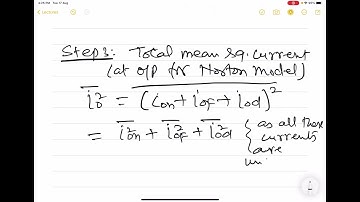 4:25 PM Tue 17 Aug
Lectures
Step 3: Total mean sq. current
(at o/p for Norton model)
i_o^2 = (i_on + i_of + i_od)^2
= i_on^2 + i_of^2 + i_od^2 { as all these
currents
are
un